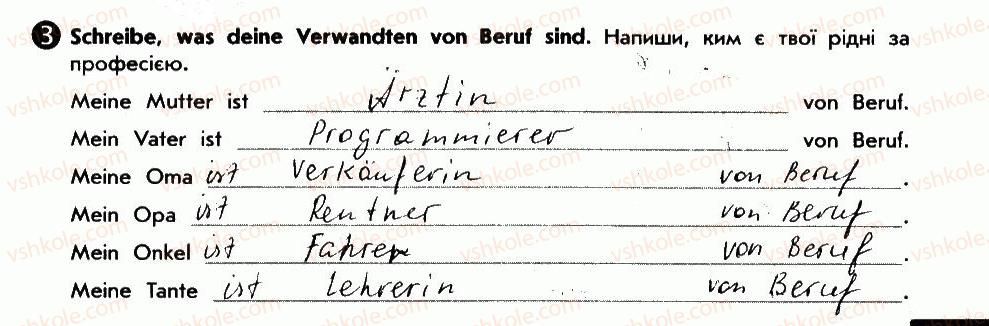 3 Schreibe, was deine Verwandten von Beruf sind. Напиши, ким є твої рідні за
професією.
Meine Mutter ist Ärztin von Beruf.
Mein Vater ist Programmierer von Beruf.
Meine Oma ist Verkäuferin von Beruf.
Mein Opa ist Rentner von Beruf.
Mein Onkel ist Fahrer von Beruf.
Meine Tante ist Lehrerin von Beruf.